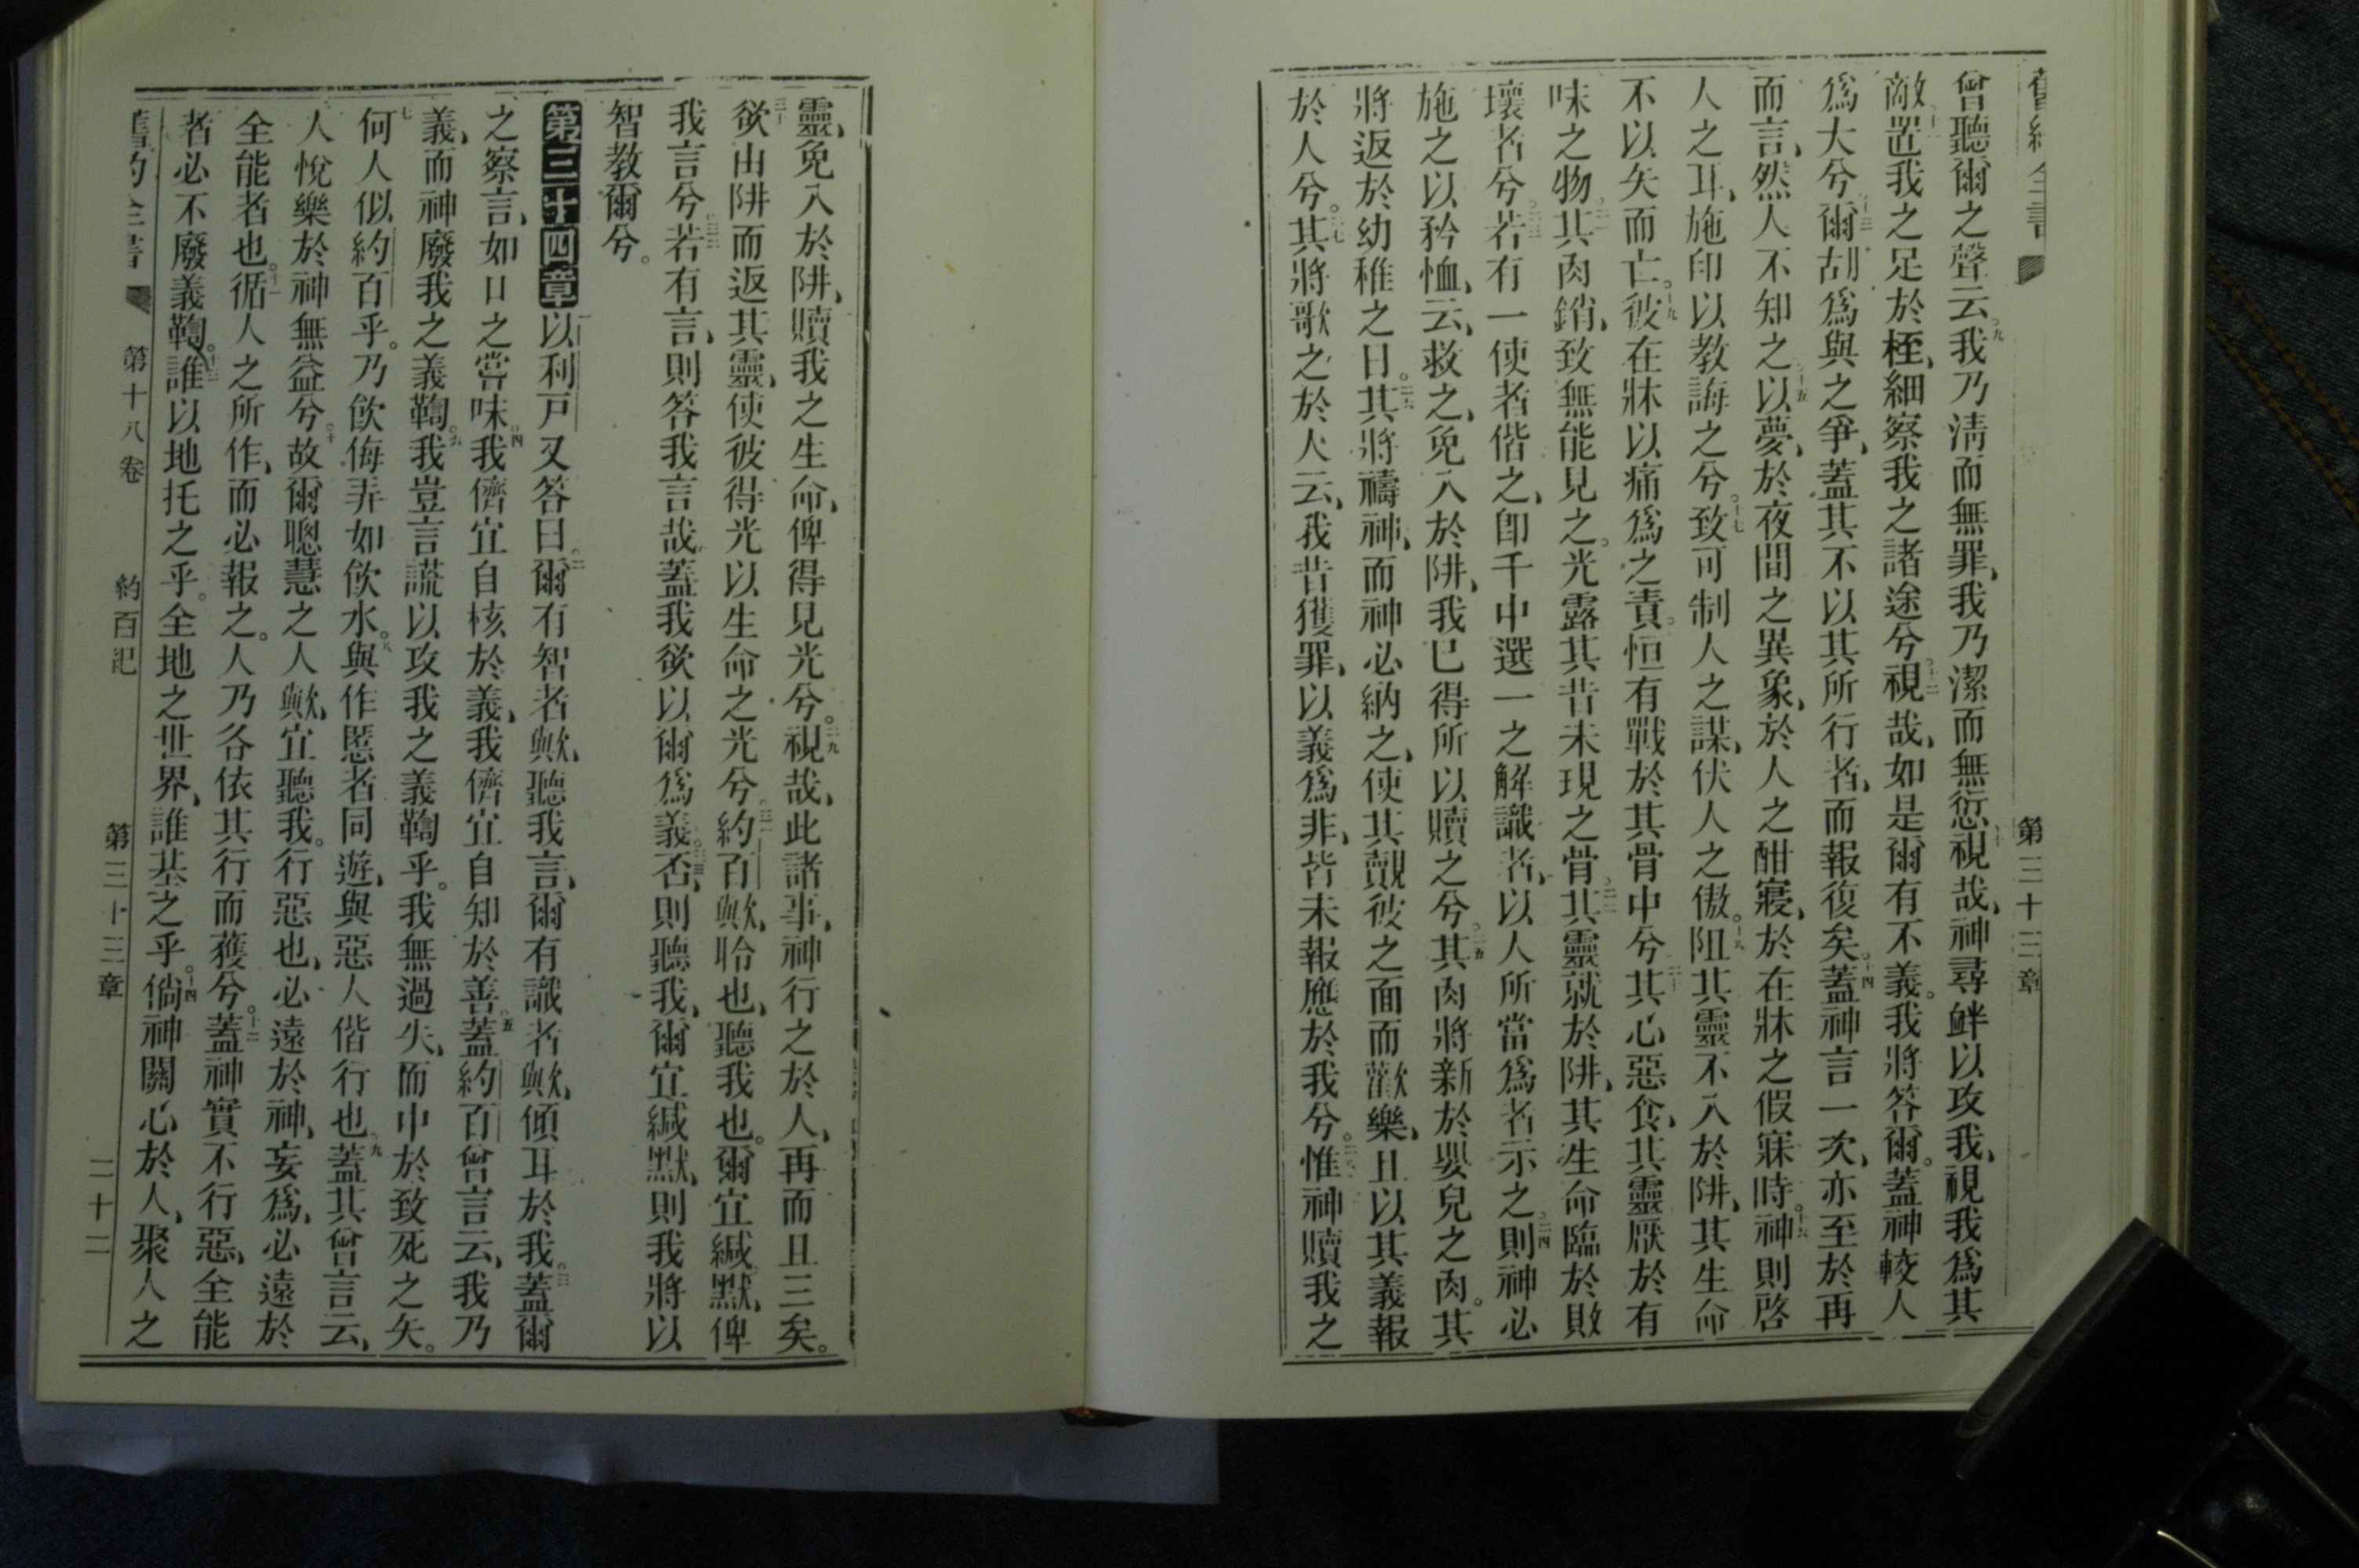 第三十三章
曾聽爾之聲云、我乃淸而無罪、我乃潔而無愆、視哉、神尋衅以攻我、視我爲其
敵、置我之足於桎、細察我之諸途兮、視哉、如是爾有不義。我將答爾。蓋神較人
爲大兮、爾胡爲與之爭、蓋其不以其所行者、而報復矣、蓋神言一次、亦至於再
而言、然人不知之、以夢、於夜間之異象、於人之酣寢、於在牀之假寐時。神則啓
人之耳、施印以教誨之兮、致可制人之謀、伏人之傲。阻其靈不入於阱、其生命
不以矢而亡。彼在牀以痛爲之責。恒有戰於其骨中兮、其心惡食、其靈厭於有
味之物、其肉銷、致無能見之。光露其昔未現之骨、其靈就於阱、其生命臨於敗
壞者兮、若有一使者偕之、卽千中選一之解識者、以人所當爲者示之、則神必
施之以矜恤、云、救之、免入於阱、我已得所以贖之兮、其肉將新於嬰兒之肉。其
將返於幼稚之日。其將禱神、而神必納之、使其覿彼之面而歡樂、且以其義報
於人兮。其將歌之於人云、我昔獲罪、以義爲非、皆未報應於我兮。惟神贖我之
靈、免入於阱、贖我之生命、俾得見光兮。視哉、此諸事、神行之於人、再而且三矣。
欲由阱而返其靈、使彼得光以生命之光兮、約百歟、聆也、聽我也。爾宜緘默、俾
我言兮、若有言、則答我言哉、蓋我欲以爾爲義、否、則聽我、爾宜緘默、則我將以
智教爾兮。
第三十四章以利戸又答曰、爾有智者歟、聽我言、爾有識者歟、傾耳於我。蓋爾
之察言、如口之嘗味、我儕宜自核於義、我儕宜自知於善、蓋約百曾言云、我乃
義、而神廢我之義鞫。我豈言謊以攻我之義鞫乎。我無過失、而中於致死之矢。
何人似約百乎。乃飲侮弄如飲水。與作慝者同遊、與惡人偕行也、蓋其曾言云、
人悅樂於神無益兮、故爾聰慧之人歟、宜聽我。行惡也、必遠於神、妄爲、必遠於
全能者也。循人之所作、而必報之。人乃各依其行而獲兮。蓋神實不行惡、全能
者必不廢義鞫。誰以地托之乎。全地之世界、誰基之乎。倘神關心於人、聚人之
第十八卷 約百記 第三十三章 二十二